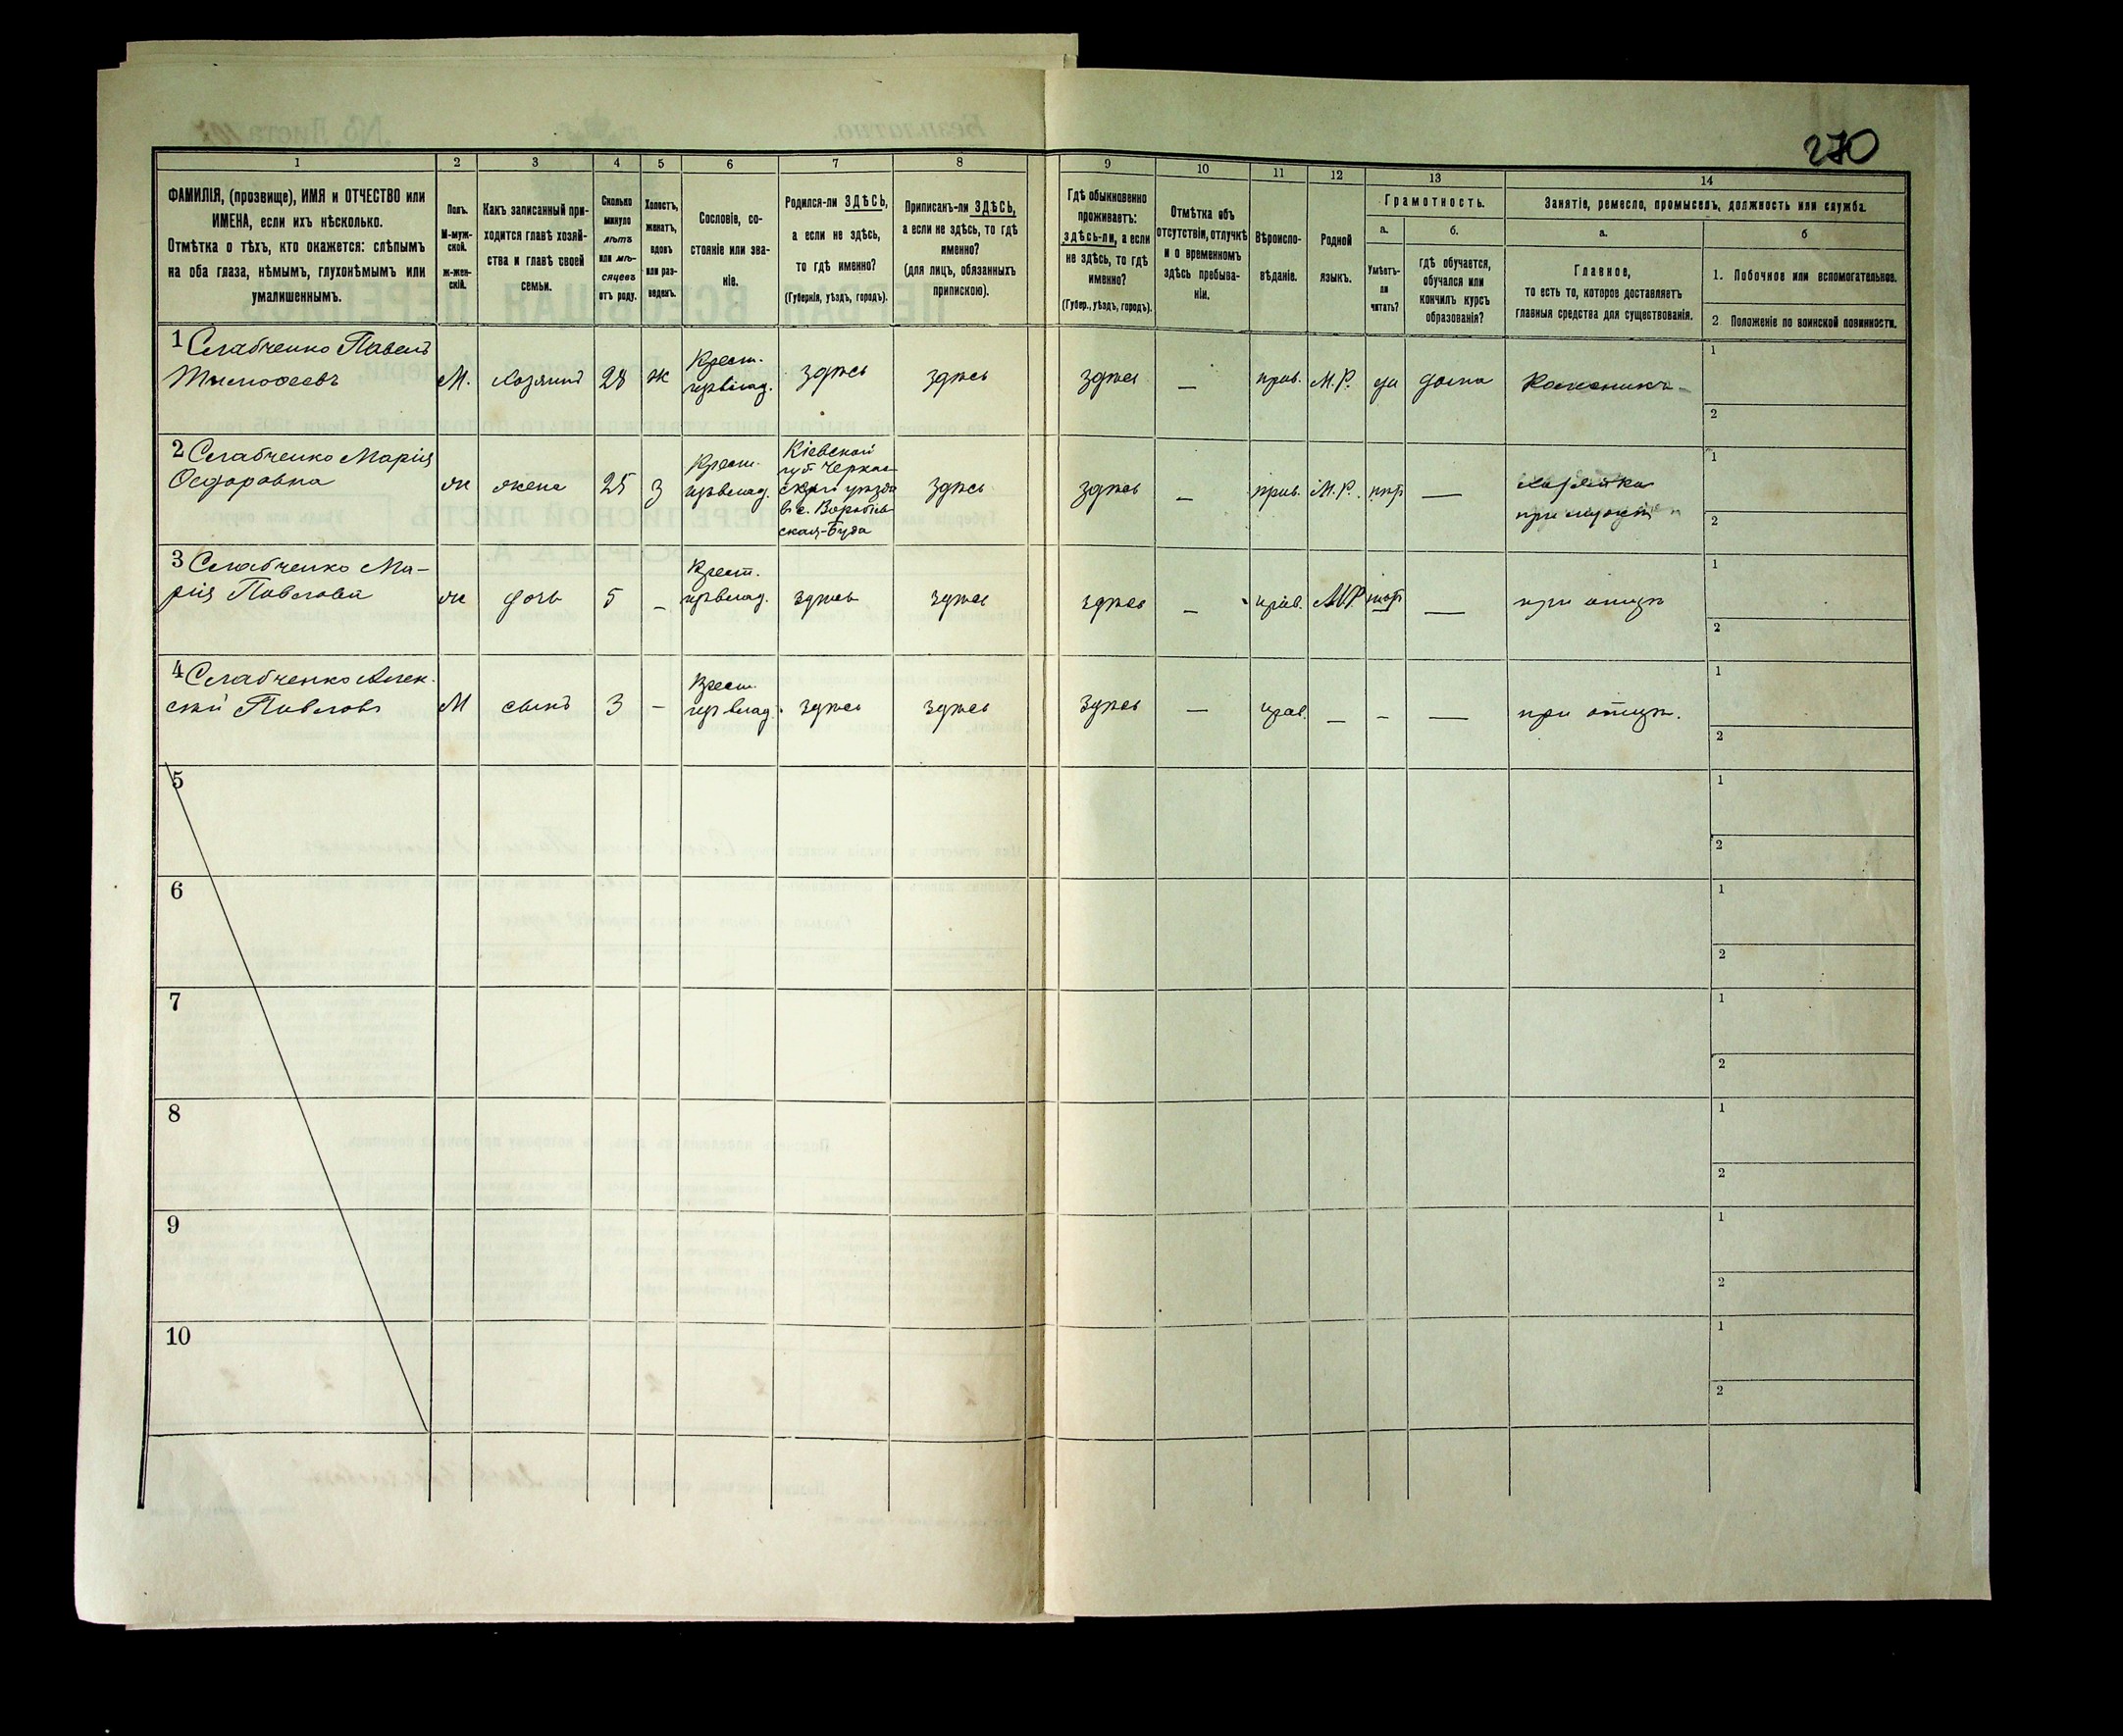 270
1 2 3 4 5 6 7 8 9 10 11 12 13 14
ФАМИЛІЯ, (прозвище), ИМЯ и ОТЧЕСТВО или
ИМЕНА, если ихъ нѣсколько.
Отмѣтка о тѣхъ, кто окажется: слѣпымъ
на оба глаза, нѣмымъ, глухонѣмымъ или
умалишеннымъ.
Полъ.
М-муж-
ской.
ж-жен-
скій.
Какъ записанный при-
ходится главѣ хозяй-
ства и главѣ своей
семьи.
Сколько
минуло
лѣтъ
или мѣ-
сяцевъ
отъ роду.
Холостъ,
женатъ,
вдовъ
или раз-
веденъ.
Сословіе, со-
стояніе или зва-
ніе.
Родился-ли ЗДѢСЬ,
а если не здѣсь,
то гдѣ именно?
(Губернія, уѣздъ, городъ).
Приписанъ-ли ЗДѢСЬ,
а если не здѣсь, то гдѣ
именно?
(для лицъ, обязанныхъ
припискою).
Гдѣ обыкновенно
проживаетъ:
здѣсь-ли, а если
не здѣсь, то гдѣ
именно?
(Губер., уѣздъ, городъ).
Отмѣтка объ
отсутствіи, отлучкѣ
и о временномъ
здѣсь пребыва-
ніи.
Вѣроиспо-
вѣданіе.
Родной
языкъ.
Грамотность.
а.
Умѣетъ-
ли
читать?
б.
гдѣ обучается,
обучался или
кончилъ курсъ
образованія?
Занятіе, ремесло, промыселъ, должность или служба.
а.
Главное,
то есть то, которое доставляетъ
главныя средства для существованія.
б
1. Побочное или вспомогательное.
2. Положеніе по воинской повинности.
1 Слабченко Павелъ
М. хозяинъ 28 ж
Крест.
здѣсь здѣсь здѣсь — прав. М.Р. да дома
1
2
2 Слабченко Марія
Ѳедоровна
ж жена 25 З
Крест.
Кіевской
губ Черкас-
скаго уѣзда
в с.
ская-Буда
здѣсь здѣсь — прав. М.Р. нѣт —
хозяйка
при
1
2
3 Слабченко Ма-
рія Павлова
ж дочь 5 —
Крест.
здѣсь здѣсь здѣсь — прав. М.Р. нѣт — при отцѣ
1
2
4 Слабченко Алек-
сѣй Павловъ
М сынъ 3 —
Крест.
здѣсь здѣсь здѣсь — прав. — — — при отцѣ.
1
2
5
1
2
6
1
2
7
1
2
8
1
2
9
1
2
10
1
2